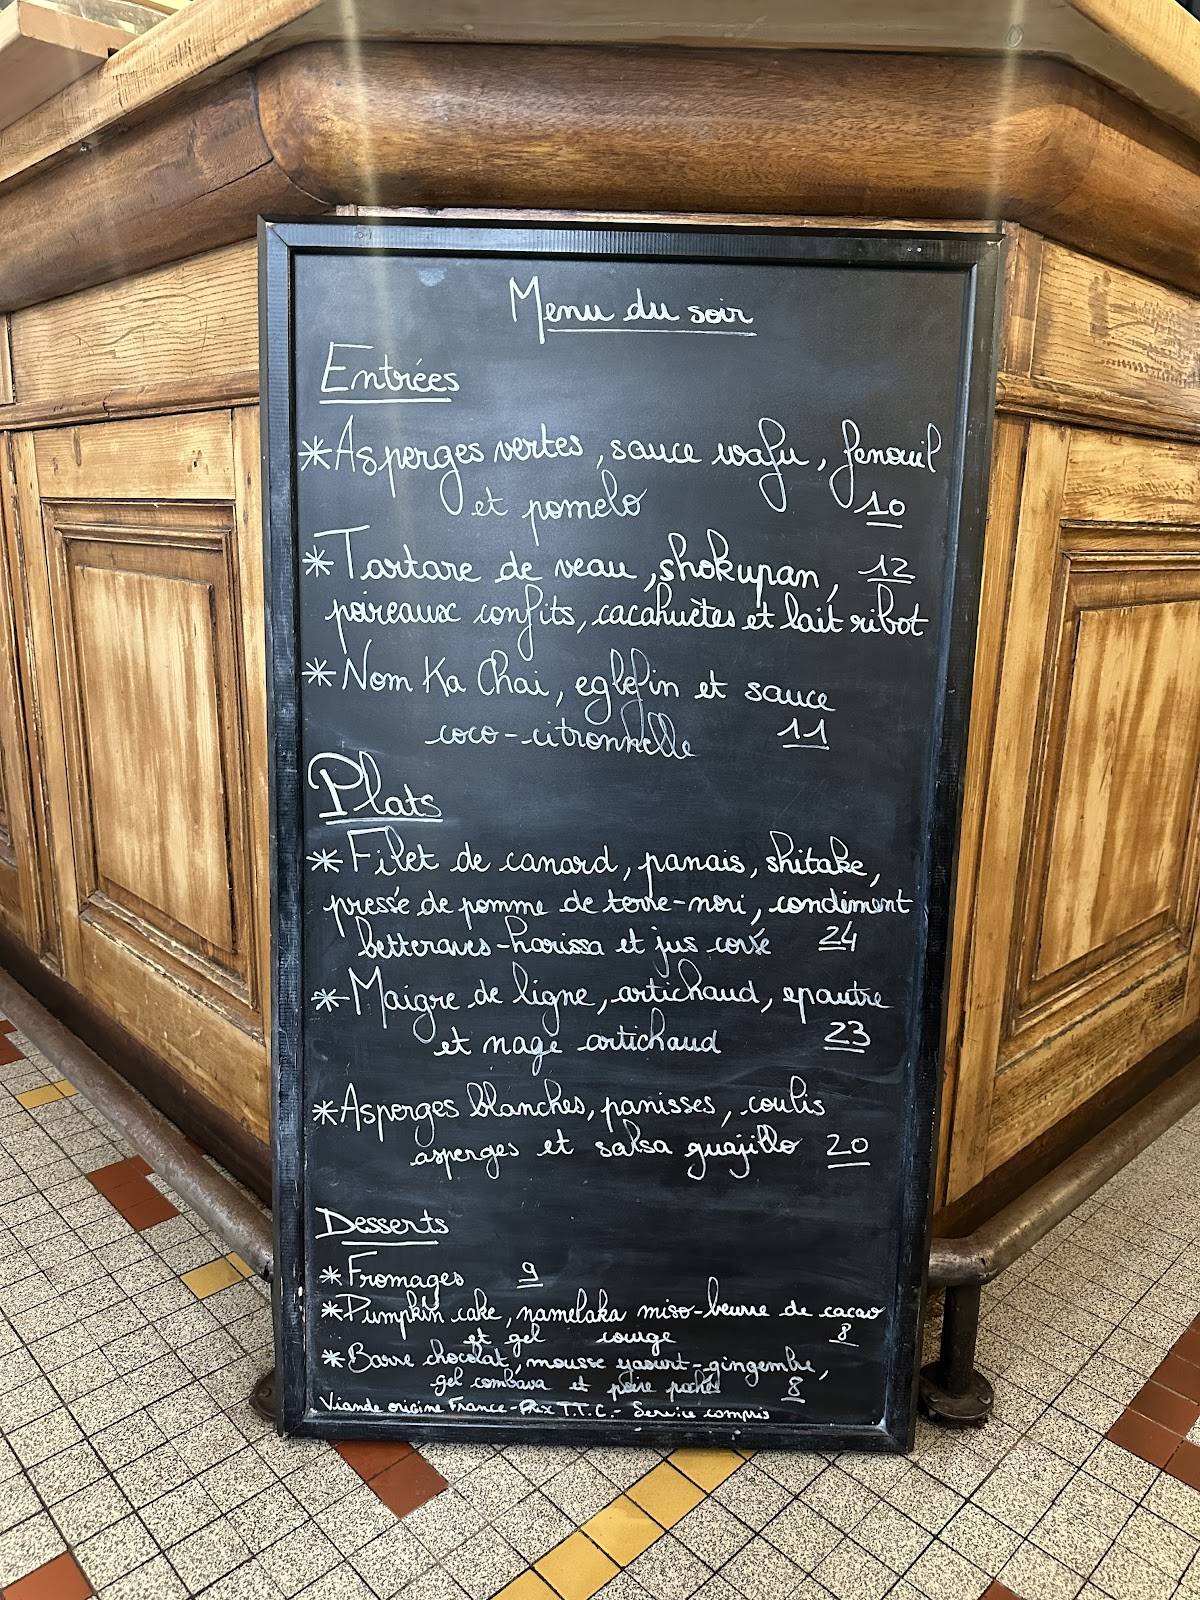 Menu du soir
Entrées
*Asperges vertes, sauce wafu, fenouil
et pomelo 10
*Tartare de veau, shokupan, 12
poireaux confits, cacahuètes et lait ribot
*Nom Ka Chai, eglefin et sauce
coco-citronnelle 11
Plats
*Filet de canard, panais, shitake,
pressé de pomme de terre-nori, condiment
betteraves-harissa et jus corsé 24
*Maigre de ligne, artichaud, epautre
et nage artichaud 23
*Asperges blanches, panisses, coulis
asperges et salsa guajillo 20
Desserts
*Fromages 9
*Pumpkin cake, namelaka miso-beurre de cacao
et gel courge 8
*Barre chocolat, mousse yaourt-gingembre,
gel combava et poire pochée 8
Viande origine France-Prix T.T.C.- Service compris